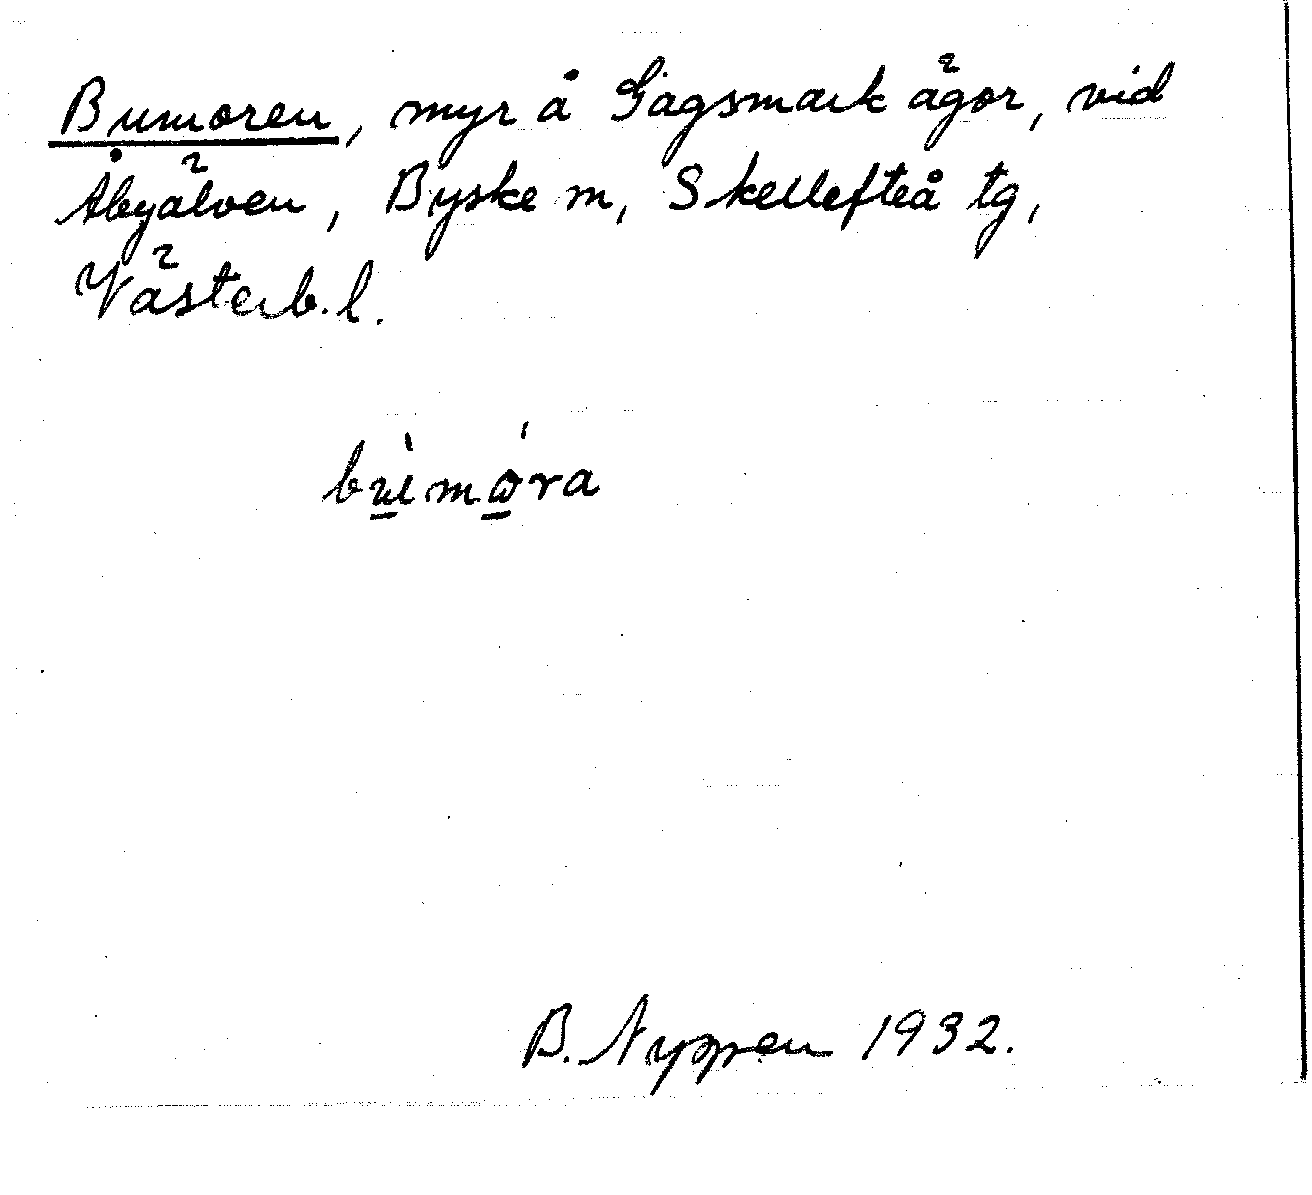 Bumoren, myr å Gagsmark ägor, vid
Åbyälven, Byske sn, Skellefteå tg,
Västerb. l.
bu̱̍mω̱̍ra
B. Nyppen 1932.